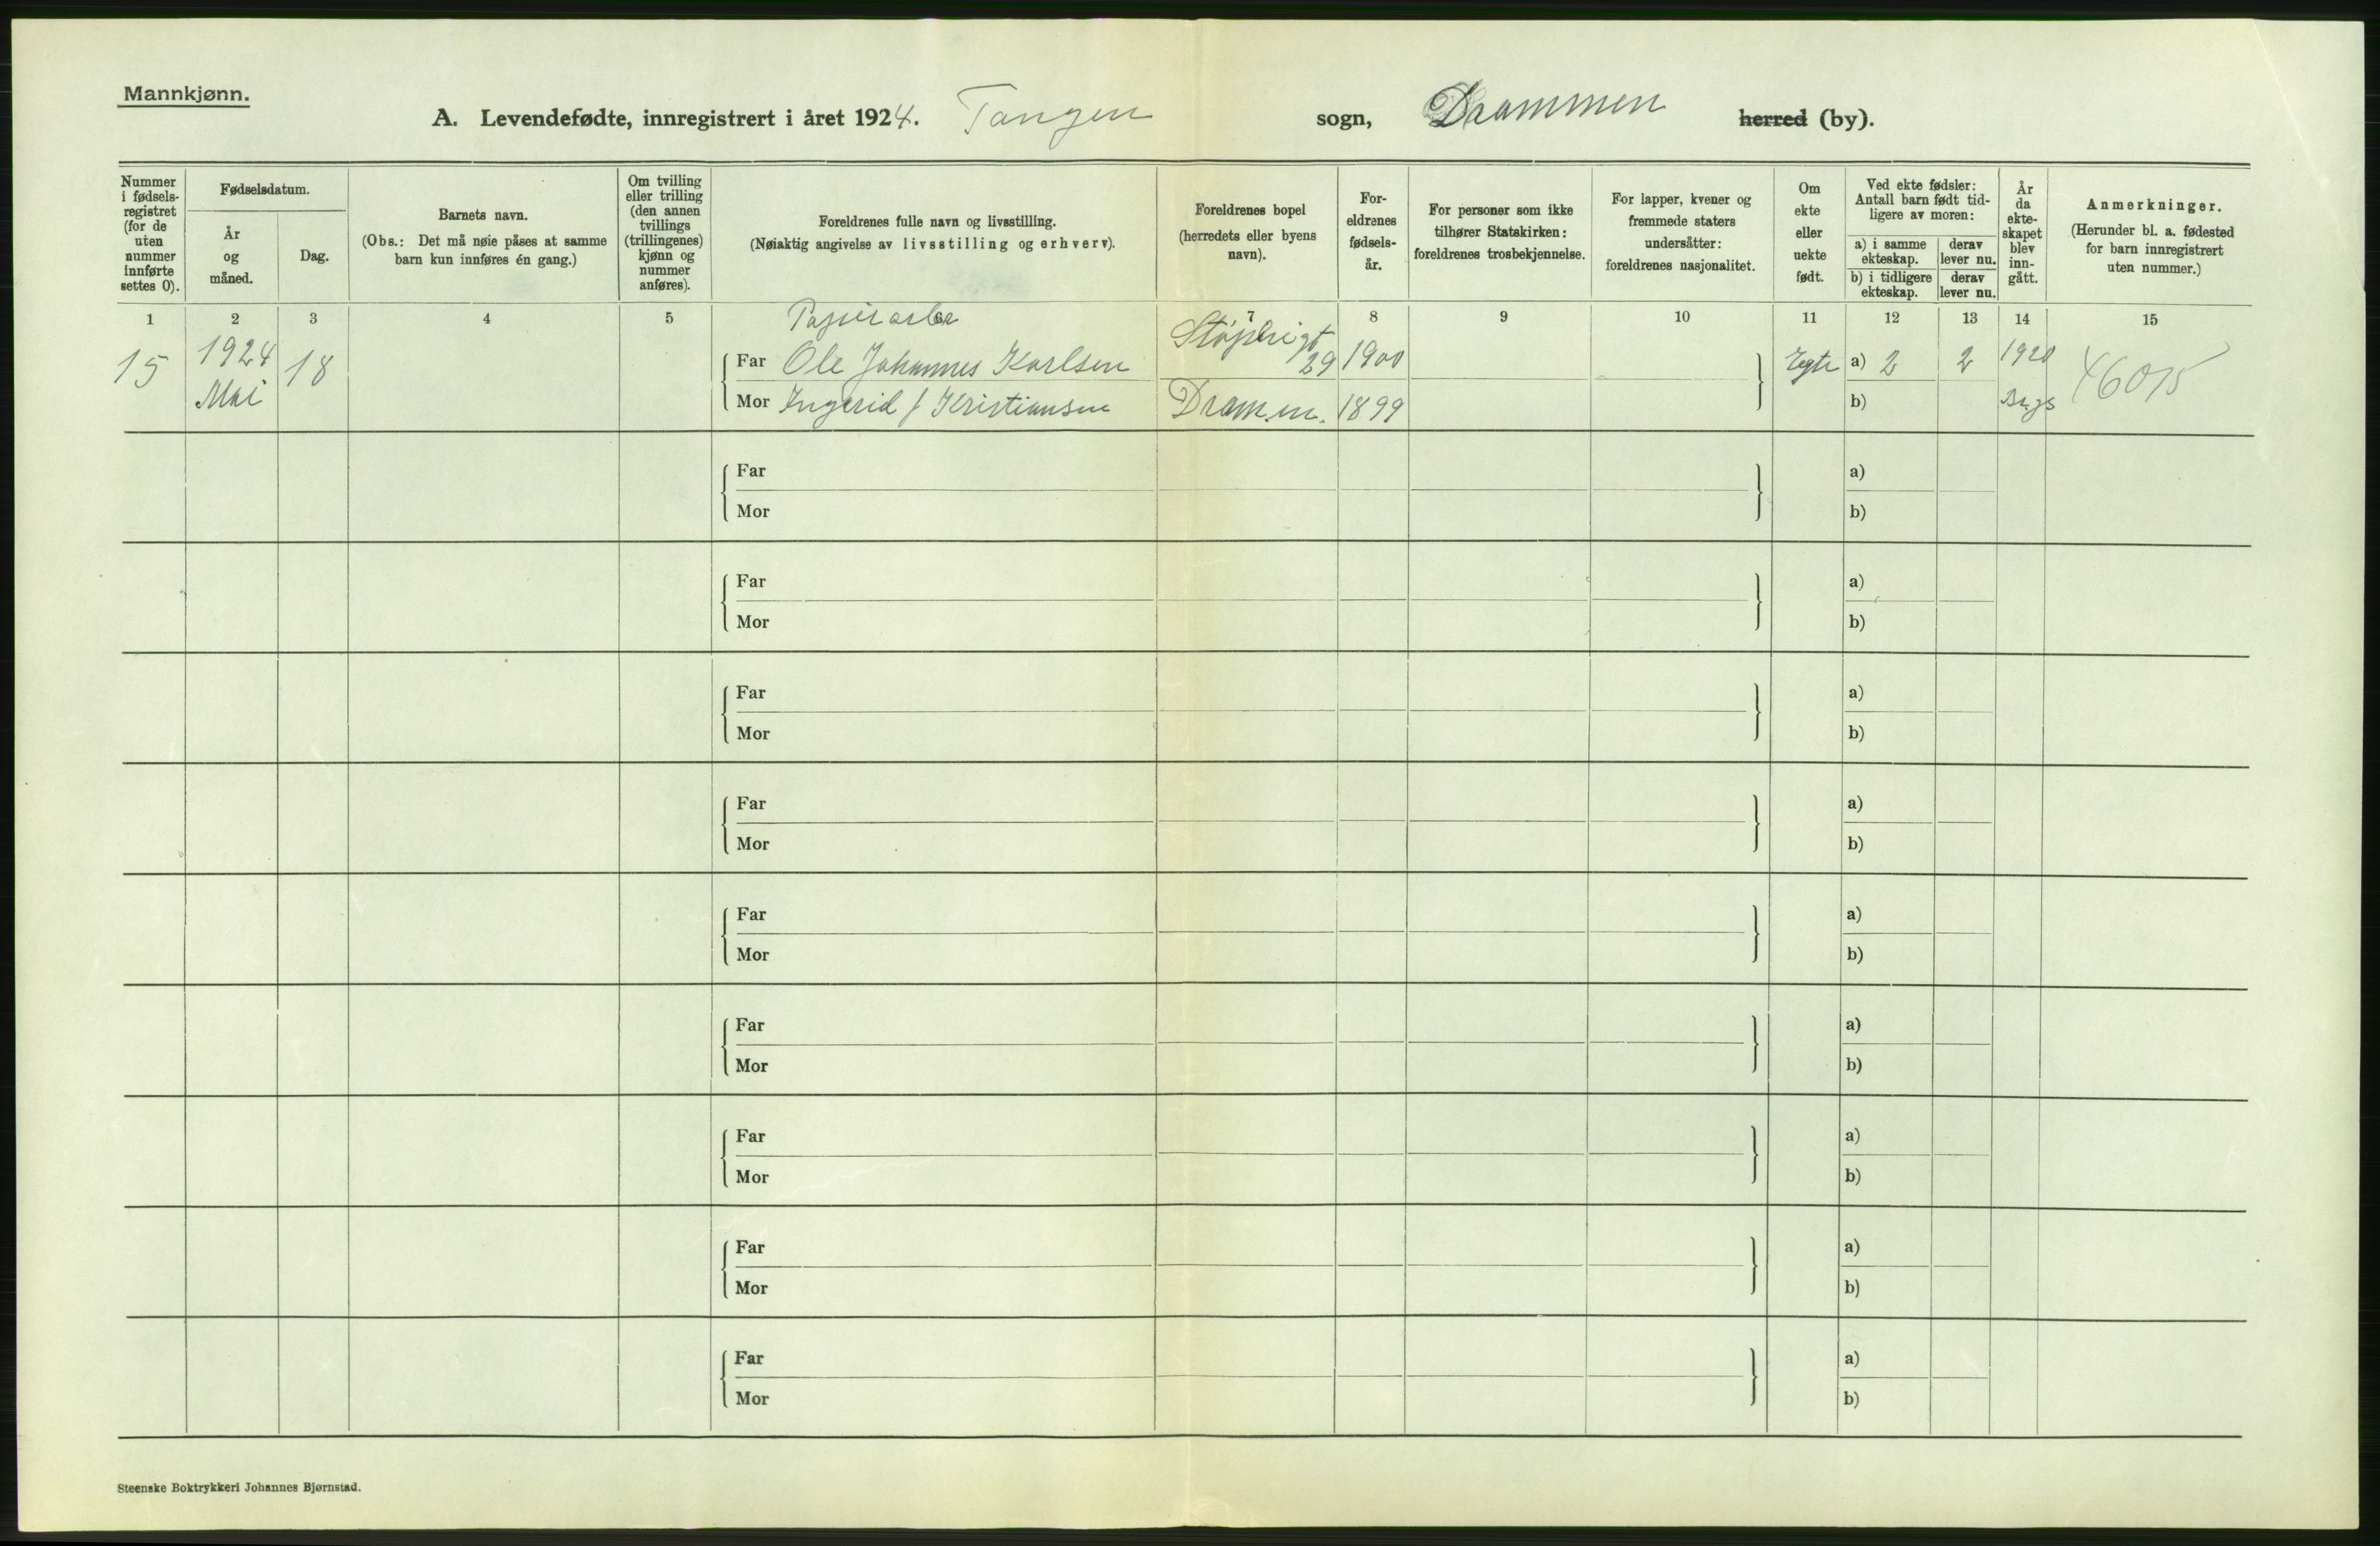 Mannkjønn.
A. Levendefødte, innregistrert i året 1924. Tangen sogn, Drammen herred (by).
Nummer i fødselsregistret (for de uten nummer innførte settes 0).
Fødselsdatum.
År og måned.
Dag.
Barnets navn.
(Obs.: Det må nøie påses at samme barn kun innføres én gang.)
Om tvilling eller trilling (den annen tvillings (trillingenes) kjønn og nummer anføres).
Foreldrenes fulle navn og livsstilling.
(Nøiaktig angivelse av livsstilling og erhverv).
Foreldrenes bopel (herredets eller byens navn).
Foreldrenes fødselsår.
For personer som ikke tilhører Statskirken: foreldrenes trosbekjennelse.
For lapper, kvener og fremmede staters undersåtter: foreldrenes nasjonalitet.
Om ekte eller uekte født.
Ved ekte fødsler: Antall barn født tidligere av moren:
a) i samme ekteskap.
derav lever nu.
b) i tidligere ekteskap.
derav lever nu.
År da ekteskapet blev inngått.
Anmerkninger.
(Herunder bl. a. fødested for barn innregistrert uten nummer.)
1 2 3 4 5 6 7 8 9 10 11 12 13 14 15
Papirarbe
15 1924 Mai 18
Far Ole Johannes Karlsen 29 1900 Egte a) 2 2 1920
Mor Ingerid f Kristiansen Drammen. 1899 b)
Far a)
Mor b)
Far a)
Mor b)
Far a)
Mor b)
Far a)
Mor b)
Far a)
Mor b)
Far a)
Mor b)
Far a)
Mor b)
Far a)
Mor b)
Far a)
Mor b)
Steenske Boktrykkeri Johannes Bjørnstad.